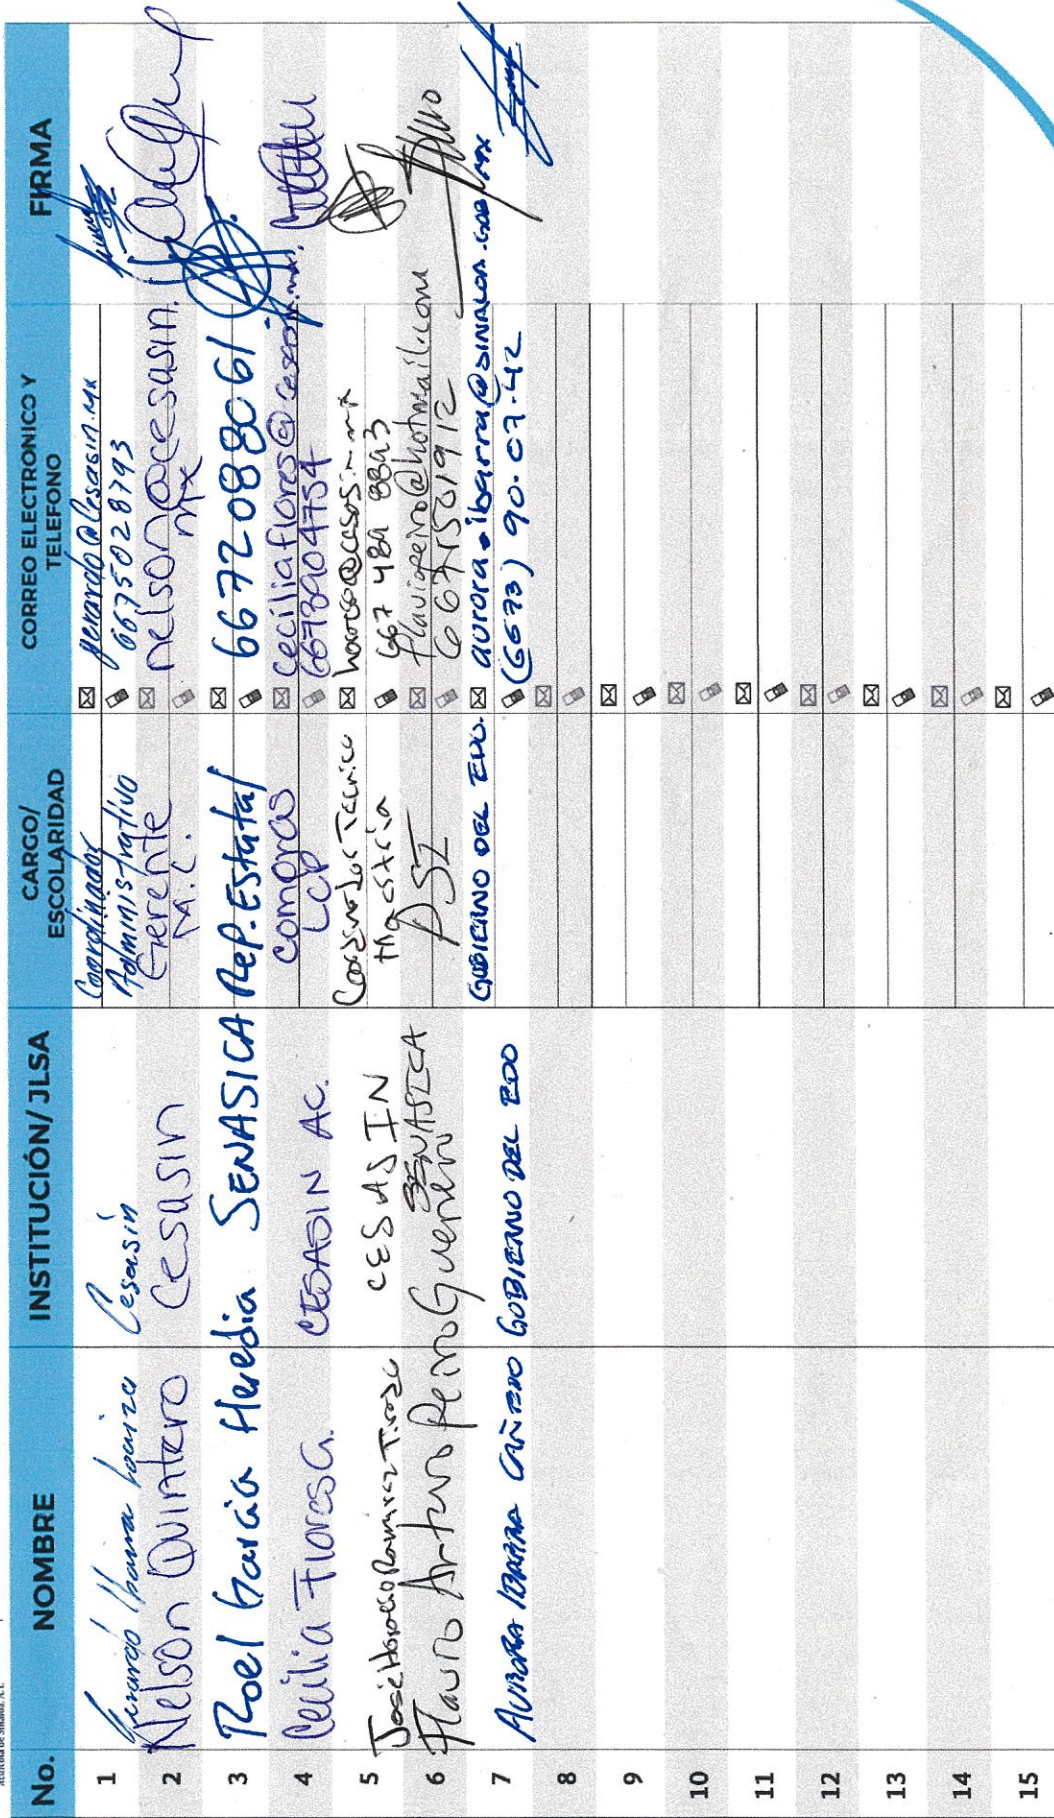 No. NOMBRE INSTITUCIÓN/ JLSA CARGO/ ESCOLARIDAD CORREO ELECTRONICO Y TELEFONO FIRMA
1 Gerardo Loaiza Cesasin Coordinador Administrativo gerardo@cesasin.mx 6675028793
2 Nelson Quintero Cesasin Gerente M.C. nelson@cesasin.mx
3 Roel Garcia Heredia SENASICA Rep. Estatal 6672088061
4 Cecilia Flores G. CESASIN AC. compras LCP ceciliaflores@cesasin.mx 6673904754
5 Jose Horacio Ramirez Tirado CESASIN Coordinador Tecnico Maestria 667 489 8893
6 Flavio Arturo Peiro Guerrero SENASICA PSI flaviopeiro@hotmail.com 6671501912
7 AURORA IBARRA CAÑEDO GOBIERNO DEL EDO GOBIERNO DEL EDO. aurora.ibarra@SINALOA.GOB.MX (6673) 90.07.42
8
9
10
11
12
13
14
15